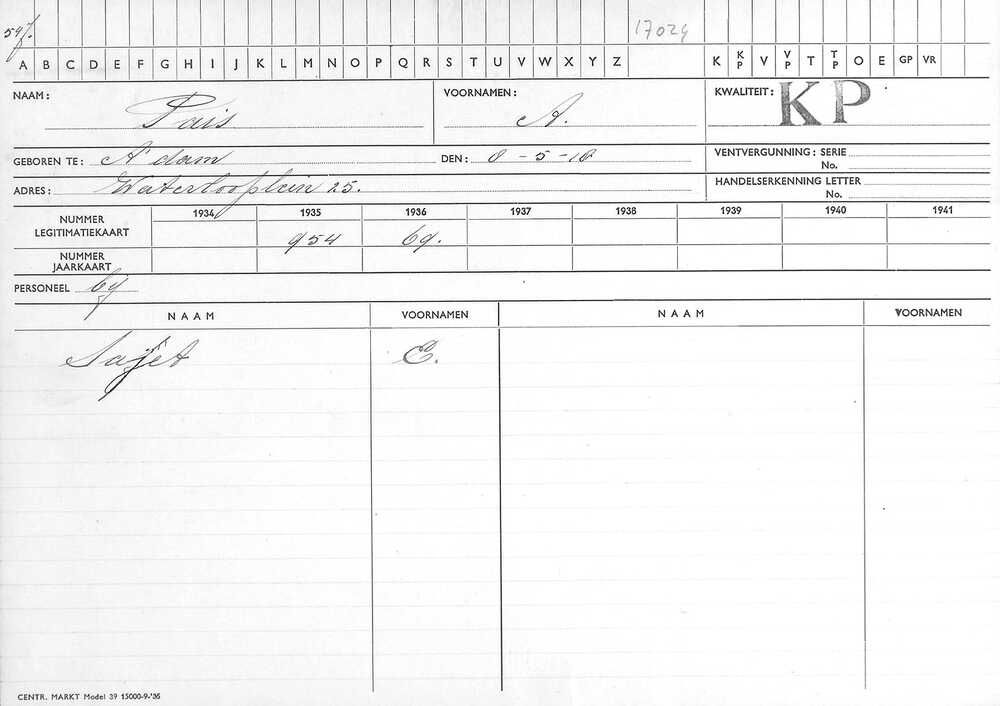 597. 17029
A B C D E F G H I J K L M N O P Q R S T U V W X Y Z K KP V VP T TP O E GP VR
NAAM: Pais VOORNAMEN: A. KWALITEIT: KP
GEBOREN TE: A'dam DEN: 8-5-10 VENTVERGUNNING: SERIE
No.
ADRES: Waterlooplein 25. HANDELSERKENNING LETTER
No.
1934 1935 1936 1937 1938 1939 1940 1941
NUMMER LEGITIMATIEKAART 954 69.
NUMMER JAARKAART
PERSONEEL bij
NAAM VOORNAMEN NAAM VOORNAMEN
Sajet E.
CENTR. MARKT Model 39 15000-9-'35